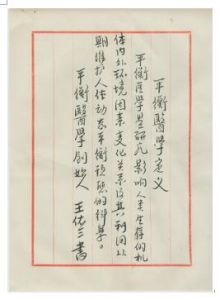 平衡醫学定义
平衡医学是研究影响人类生存的机
体内外环境因素变化关系及其利用以
期维护人体动态平衡稳态的科學。
平衡醫學創始人 王佑三書